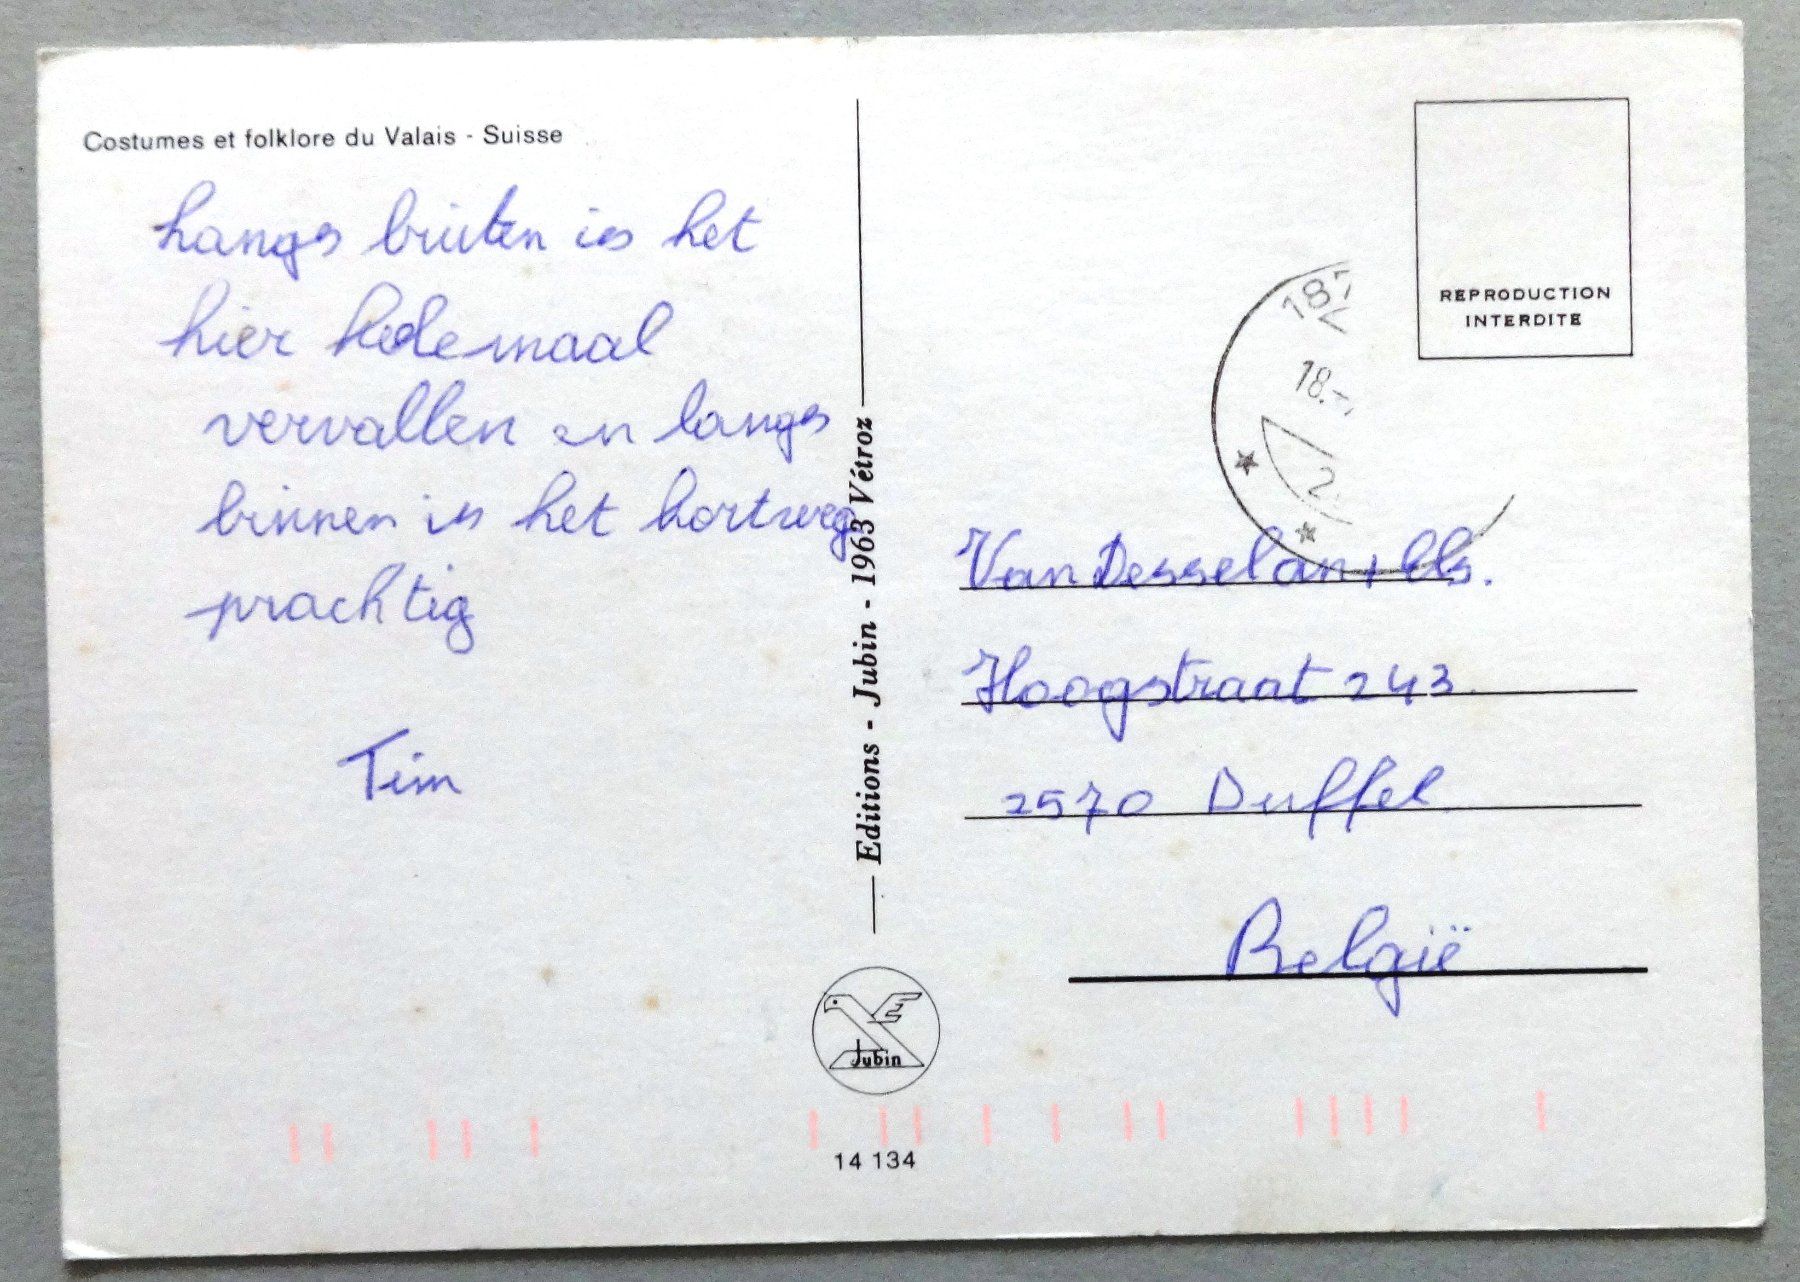 Costumes et folklore du Valais - Suisse
langs buiten is het
hier helemaal
vervallen en langs
binnen is het kortweg
prachtig
Tim
Editions - Jubin - 1963 Vétroz
Jubin
14 134
REPRODUCTION
INTERDITE
18.-
2
Van Dessel
Hoogstraat 243
2570 Duffel
België